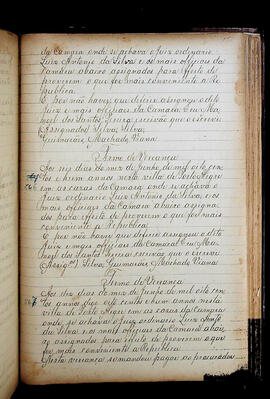 da Camara onde se achava o Juiz ordinario
Luiz Antonio da Silva e os mais officiaes da
Camara abaixo assignados para effeito de
proverem o que for mais conveniente a Re
publica.
E por não haver que deferir assignou o dito
Juiz e mais officiaes da Camara Eu Ma
noel dos Santos escrivão que o escrevi
(Assignados) Silva, Silva,
Guimarães, Machado, Viana
Termo de Vereança
Aos seis dias do mez de Junho de mil oito cen
tos e annos nesta villa de Porto Alegre
em as casas da Camara onde se achava o
Juiz ordinario Luiz Antonio da Silva, e os
mais officiaes da Camara abaixo assigna
dos para effeito de proverem o que for mais
conveniente a Republica.
E por não haver que deferir assignou o dito
Juiz e mais officiaes da Camara Eu Ma
noel dos Santos escrivão que o escrevi
(Assig.os) Silva, Guimarães, Machado, Viana
Termo de Vereança
Aos dez dias do mez de Junho de mil oito cen
tos annos nesta
villa de Porto Alegre em as casas da Camara
onde se achava o Juiz ordinario Luiz Anto
da Silva e os mais officiaes da Camara abai
xo assignados para effeito de proverem o que
for mais conveniente a Republica
Nesta vereança se mandou pagar ao procurador